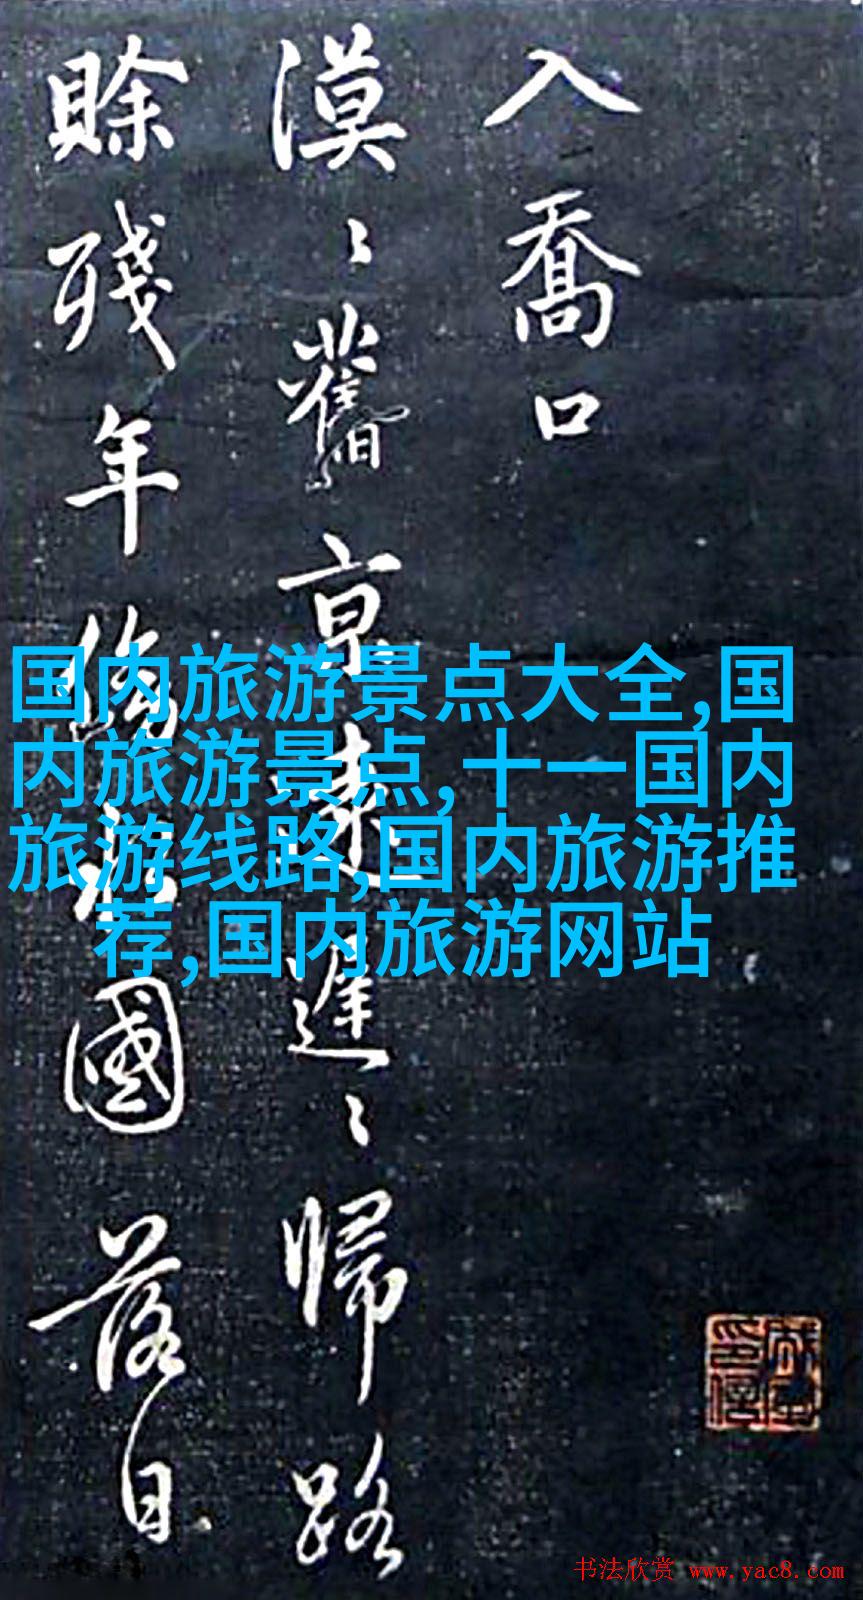 入喬口
漠〻舊京遠遲〻歸路
賒殘年傍水國落日
国内旅游景点大全,国
内旅游景点,十一国内
旅游线路,国内旅游推
荐,国内旅游网站
书法欣赏 www.yac8.com